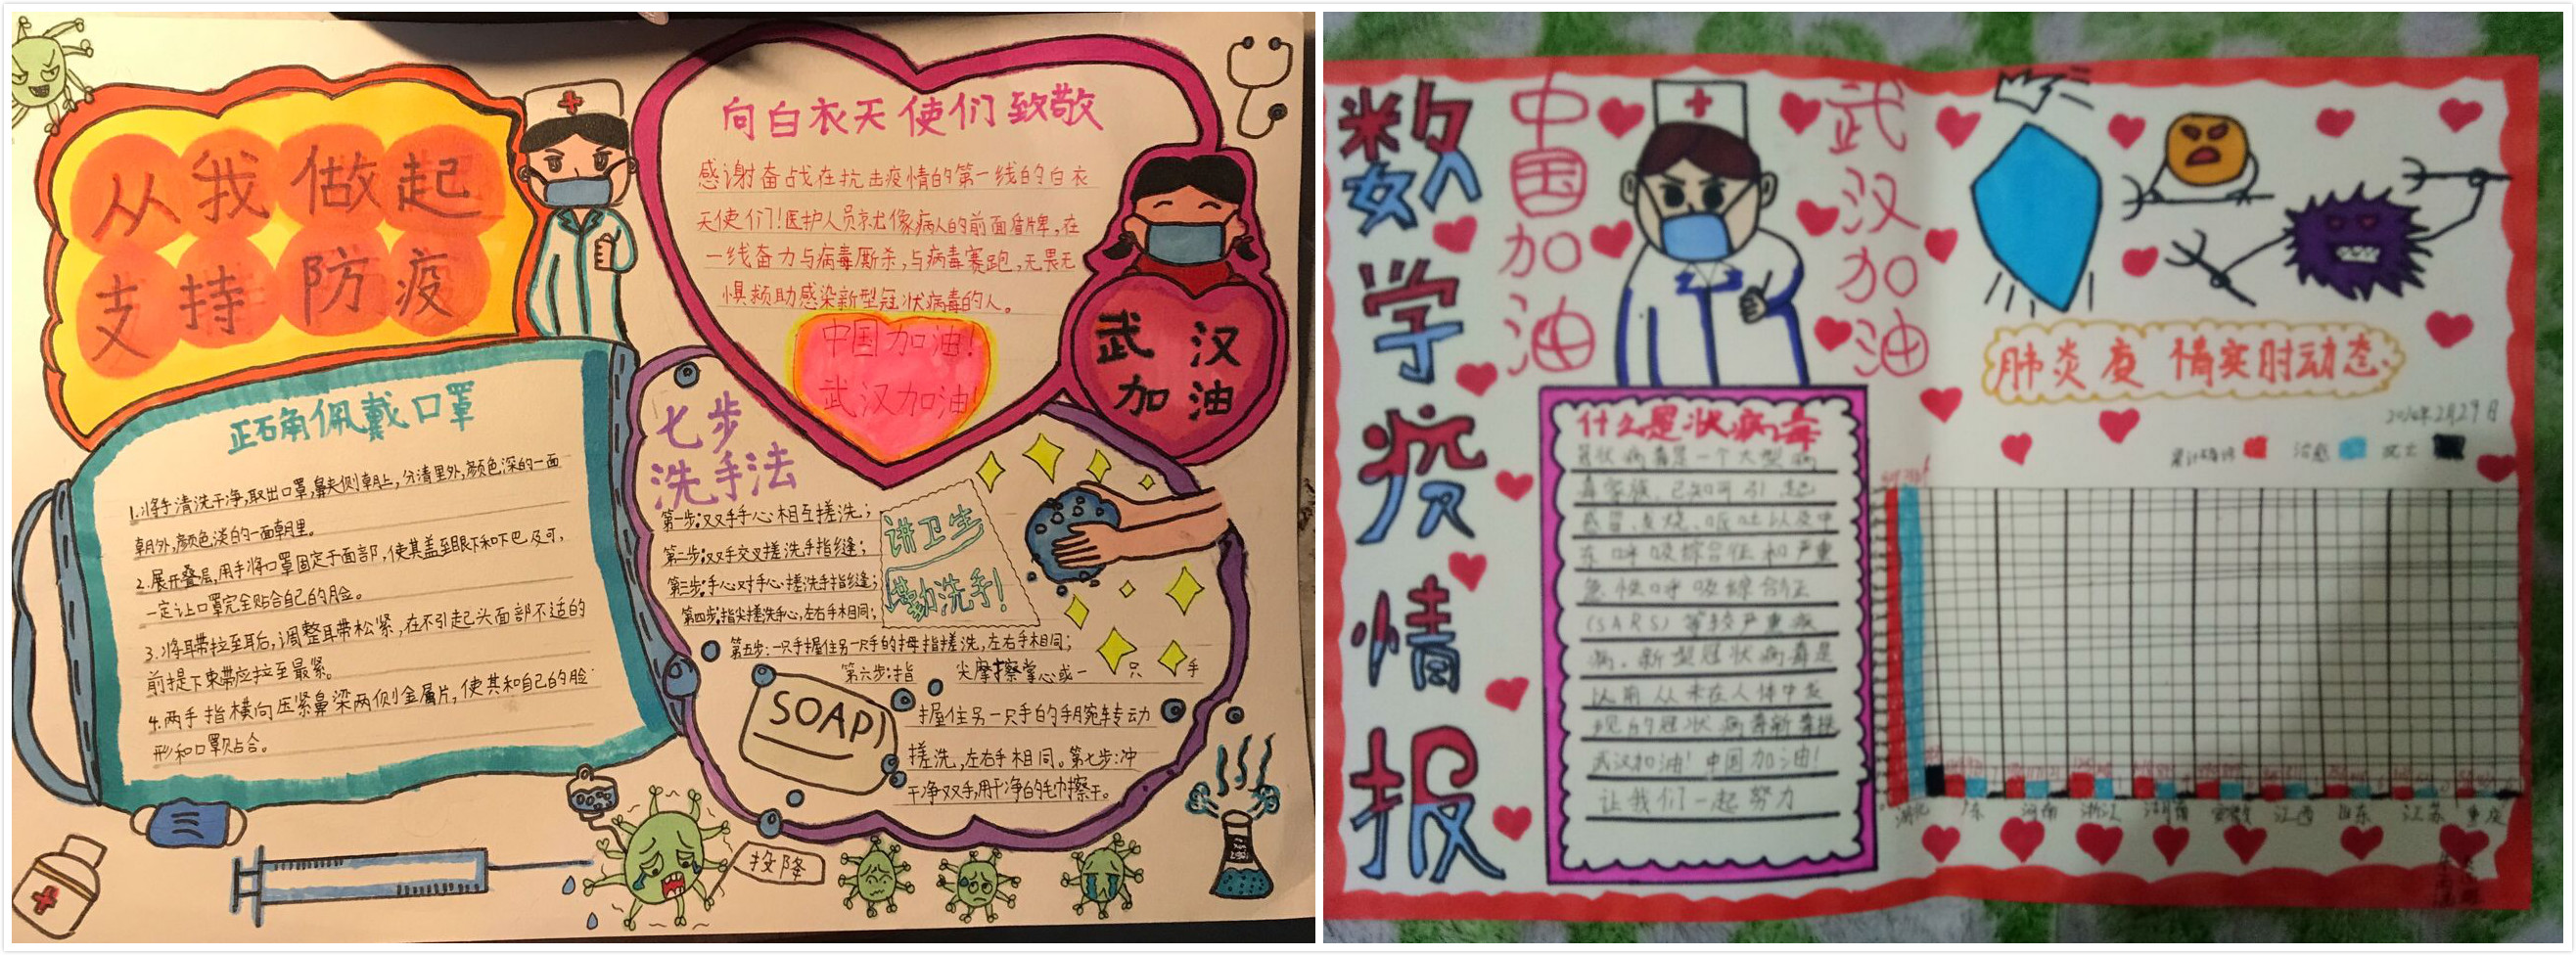 从我做起
支持防疫
向白衣天使们致敬
感谢奋战在抗击疫情的第一线的白衣
天使们！医护人员就像病人的前面盾牌，在
一线奋力与病毒厮杀，与病毒赛跑，无畏无
惧频助感染新型冠状病毒的人。
中国加油！
武汉加油！
武汉
加油
正确佩戴口罩
1.将手清洗干净，取出口罩，鼻夹侧朝上，分清里外，颜色深的一面
朝外，颜色淡的一面朝里。
2.展开叠层，用手将口罩固定于面部，使其盖至眼下和下巴及可，
一定让口罩完全贴合自己的脸。
3.将耳带拉至耳后，调整耳带松紧，在不引起头面部不适的
前提下束带应拉至最紧。
4.两手指横向压紧鼻梁两侧金属片，使其和自己的脸
形和口罩贴合。
七步
洗手法
第一步：双手手心相互搓洗；
第二步：双手交叉搓洗手指缝；
第三步：手心对手心搓洗手指缝；
第四步：指尖搓洗手心，左右手相同；
第五步：一只手握住另一只手的拇指搓洗，左右手相同；
第六步：指尖摩擦掌心或一只手
握住另一只手的手腕转动
搓洗，左右手相同。第七步：冲
干净双手，用干净的毛巾擦干。
讲卫生
勤洗手！
SOAP
投降
数学疫情报
中国加油
武汉加油
肺炎疫情实时动态
2月29日
治愈
什么是状病毒
冠状病毒是一个大型病
毒家族，已知可引起
感冒
东呼吸综合征和严重
急性呼吸综合征
(SARS)等较严重疾
病。新型冠状病毒是
以前从未在人体中发
现的冠状病毒新毒株
武汉加油！中国加油！
让我们一起努力
湖北 广东 河南 浙江 湖南 安徽 江西 山东 江苏 重庆